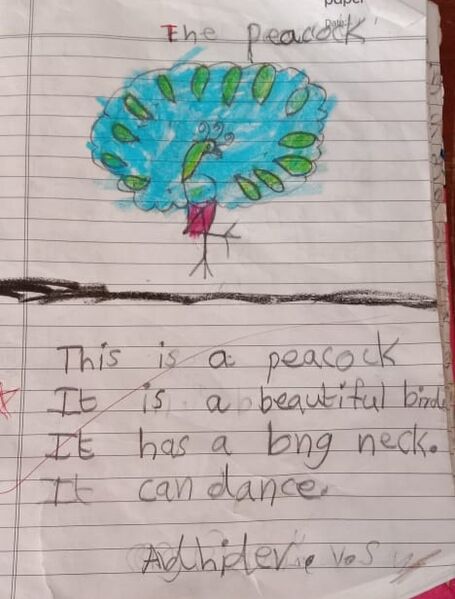 paper
The peacock
This is a peacock
It is a beautiful birde
It has a long neck.
It can dance.